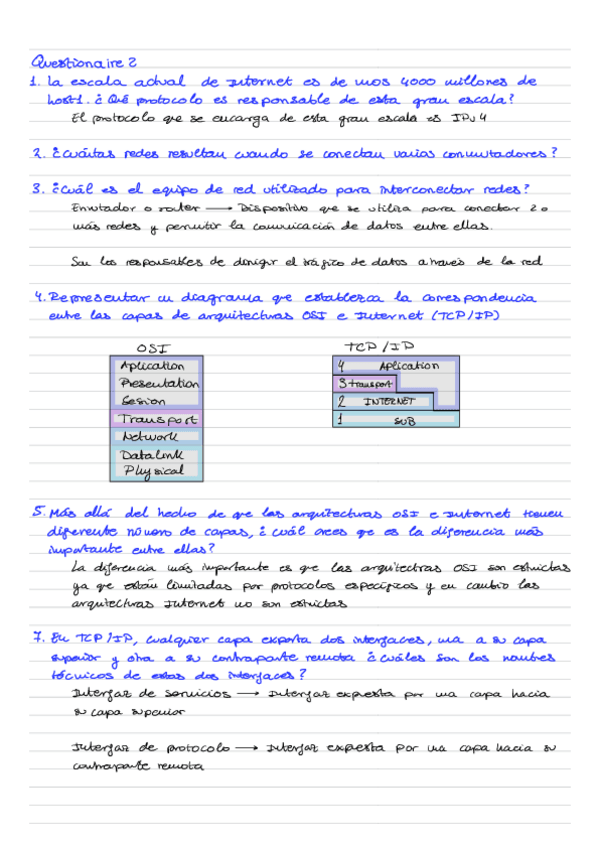 Questionaire 2
1. La escala actual de Internet es de unos 4000 millones de
host1. ¿Qué protocolo es responsable de esta gran escala?
El protocolo que se encarga de esta gran escala es IPv4
2. ¿Cuántas redes resultan cuando se conectan varios conmutadores?
3. ¿Cuál es el equipo de red utilizado para interconectar redes?
Enrutador o router → Dispositivo que se utiliza para conectar 2 o
más redes y permitir la comunicación de datos entre ellas.
Son los responsables de dirigir el tráfico de datos a través de la red
4. Representar un diagrama que establezca la correspondencia
entre las capas de arquitecturas OSI e Internet (TCP/IP)
OSI
Aplication
Presentation
Sesion
Transport
Network
Datalink
Physical
TCP/IP
4 Aplication
3 transport
2 INTERNET
1 SUB
5. Más allá del hecho de que las arquitecturas OSI e Internet tienen
diferente número de capas, ¿cuál crees que es la diferencia más
importante entre ellas?
La diferencia más importante es que las arquitectras OSI son estrictas
ya que están limitadas por protocolos específicos y en cambio las
arquitectras Internet no son estrictas
7. En TCP/IP, cualquier capa exporta dos interfaces, una a su capa
superior y otra a su contraparte remota ¿cuáles son los nombres
técnicos de estas dos interfaces?
Interfaz de servicios → Interfaz expuesta por una capa hacia
su capa superior
Interfaz de protocolo → Interfaz expuesta por una capa hacia su
contraparte remota